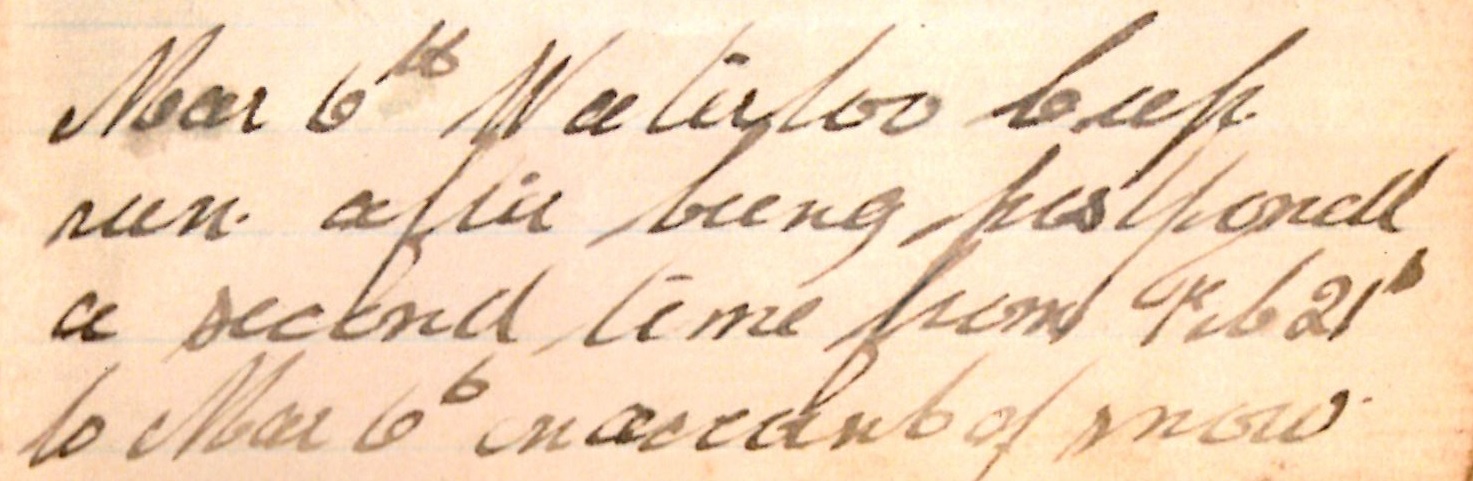 Mar 6th Waterloo Cup
run after being postponed
a second time from Feb 21s
to Mar 6th on account of snow